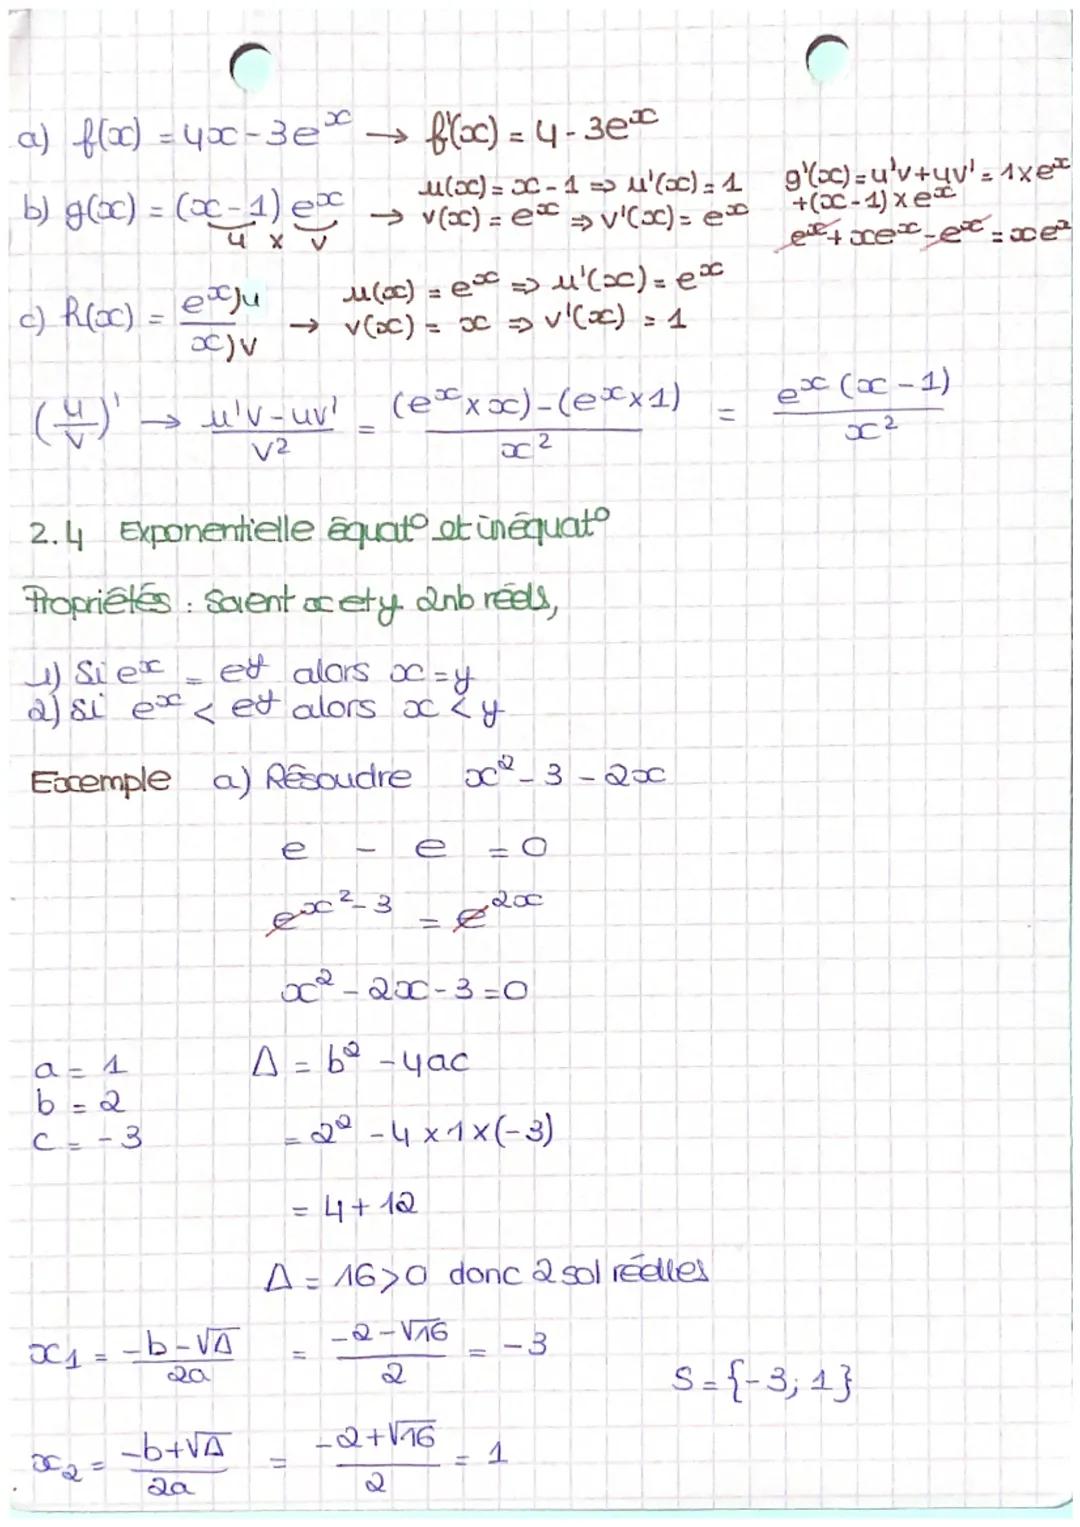 a) f(x) = 4x - 3e^x → f'(x) = 4 - 3e^x
b) g(x) = (x-1) e^x → u(x) = x - 1 ⇒ u'(x) = 1
u × v
v(x) = e^x ⇒ v'(x) = e^x
g'(x) = u'v + uv' = 1×e^x
+(x-1)×e^x
e^x + xe^x - e^x = xe^x
c) h(x) = e^x)u / x)v → u(x) = e^x ⇒ u'(x) = e^x
v(x) = x ⇒ v'(x) = 1
(u/v)' → u'v - uv' / v² = (e^x × x) - (e^x × 1) / x² = e^x (x - 1) / x²
2.4 Exponentielle équat° et inéquat°
Propriétés : Soient x et y 2nb réels,
1) Si e^x = e^y alors x = y
2) Si e^x < e^y alors x < y
Exemple a) Résoudre x² - 3 - 2x
e - e = 0
e^x²-3 = e^2x
x² - 2x - 3 = 0
a = 1
b = 2
c = -3
Δ = b² - 4ac
= 2² - 4 × 1 × (-3)
= 4 + 12
Δ = 16 > 0 donc 2 sol réelles
x₁ = -b - √Δ / 2a = -2 - √16 / 2 = -3
S = {-3; 1}
x₂ = -b + √Δ / 2a = -2 + √16 / 2 = 1